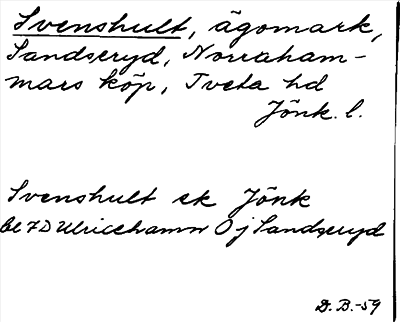 Svenshult, ägomark,
Sandseryd, Norraham-
mars köp, Tveta hd
Jönk. l.
Svenshult ek Jönk
bl 7D Ulricehamn Oj Sandseryd
D. B. -59